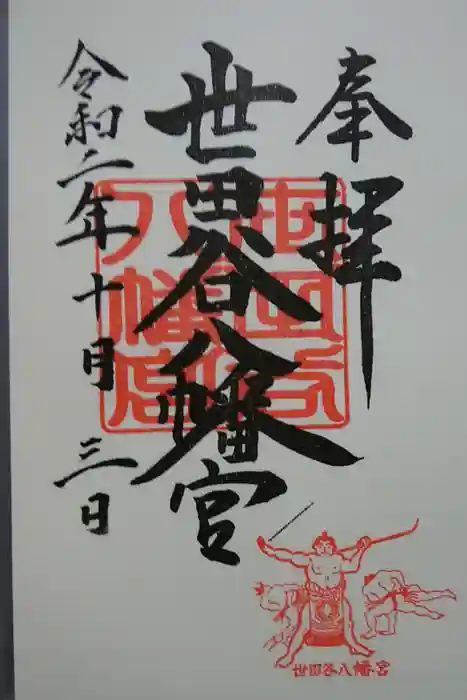 奉拝
世田谷八幡宮
令和二年十月三日
世田谷
八幡宮
世田谷八幡宮